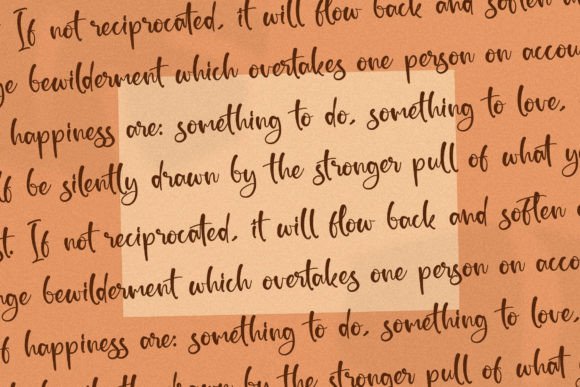 If not reciprocated, it will flow back and soften
bewilderment which overtakes one person on
happiness are: something to do, something to love,
be silently drawn by the stronger pull of what
If not reciprocated, it will flow back and soften
bewilderment which overtakes one person on
happiness are: something to do, something to love,
drawn by the stronger pull of what